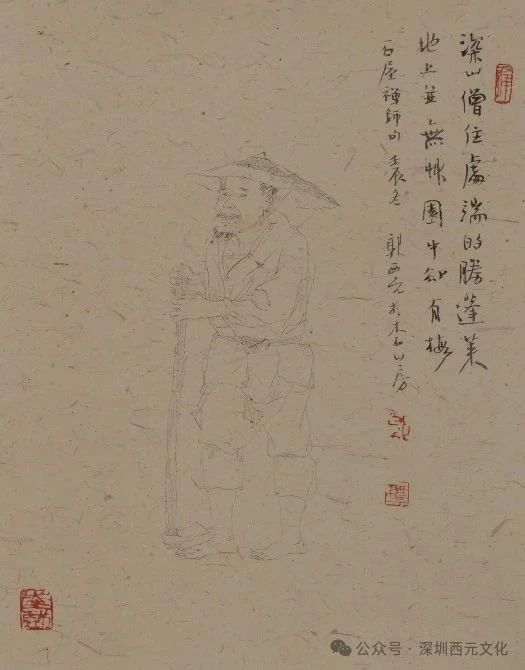 深山僧住處端的勝蓬萊
地上並無園中卻有梅
石屋禪師句 壬辰冬 郭西元於木石山房
公众号 · 深圳西元文化